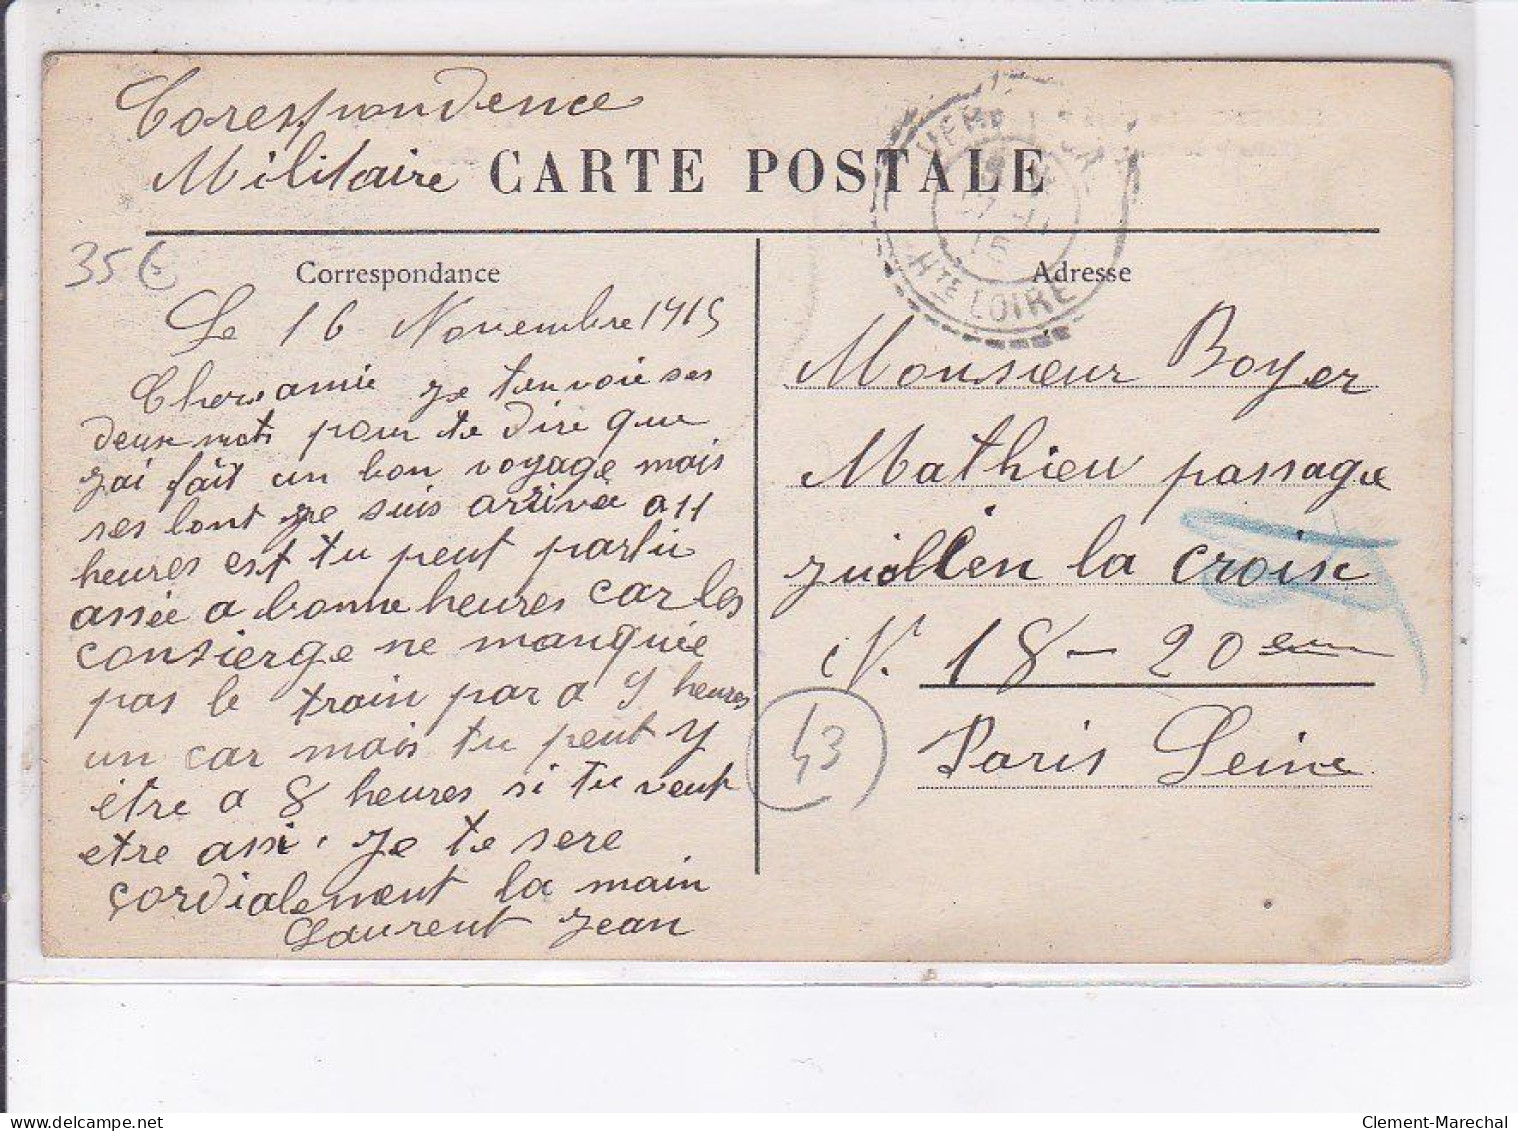 Corespondence
Militaire
CARTE POSTALE
35€
HTE LOIRE
Correspondance
Le 16 Novembre 1915
Cher amie je tenvoie ses
deux mots pour te dire que
jai fait un bon voyage mais
ses lont je suis arrivee a 11
heures est tu peut partir
assée a bonne heures car les
consierge ne manquée
pas le train par a 9 heures
un car mais tu peut y
être a 8 heures si tu veut
etre assi. Je te sere
cordialement la main
Laurent Jean
Adresse
Monsieur Boyer
Mathieu passage
la croix
N. 18 - 20 eme
Paris Seine
43
delcampe.net
Clement-Marechal